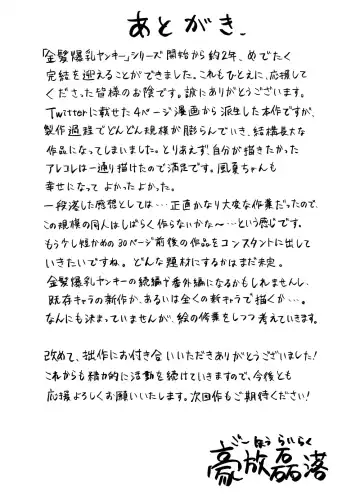 あとがき.
「金髪爆乳ヤンキー」シリーズ開始から約2年、めでたく
完結を迎えることができました。これもひとえに、応援して
くださった皆様のお陰です。誠にありがとうございます。
Twitterに載せた4ページ漫画から派生した本作ですが、
製作過程でどんどん規模が膨らんでいき、結構長大な
作品になってしまいました。とりあえず、自分が描きたかった
アレコレは一通り描けたので満足です。風夏ちゃんも
幸せになって よかったよかった。
一段落した感想としては…正直かなり大変な作業だったので、
この規模の同人はしばらく作らないかな〜…という感じです。
もう少し短かめの30ページ前後の作品をコンスタントに出して
いきたいですね。どんな題材にするかはまだ未定。
金髪爆乳ヤンキーの続編や番外編になるかもしれませんし、
既存キャラの新作か、あるいは全くの新キャラで描くか…。
なんにも決まっていませんが、絵の修業をしつつ考えていきます。
改めて、拙作にお付き合いいただきありがとうございました!
これからも精力的に活動を続けていきますので、今後とも
応援よろしくお願いいたします。次回作もご期待ください!
ごーほうらいらく
豪放磊落